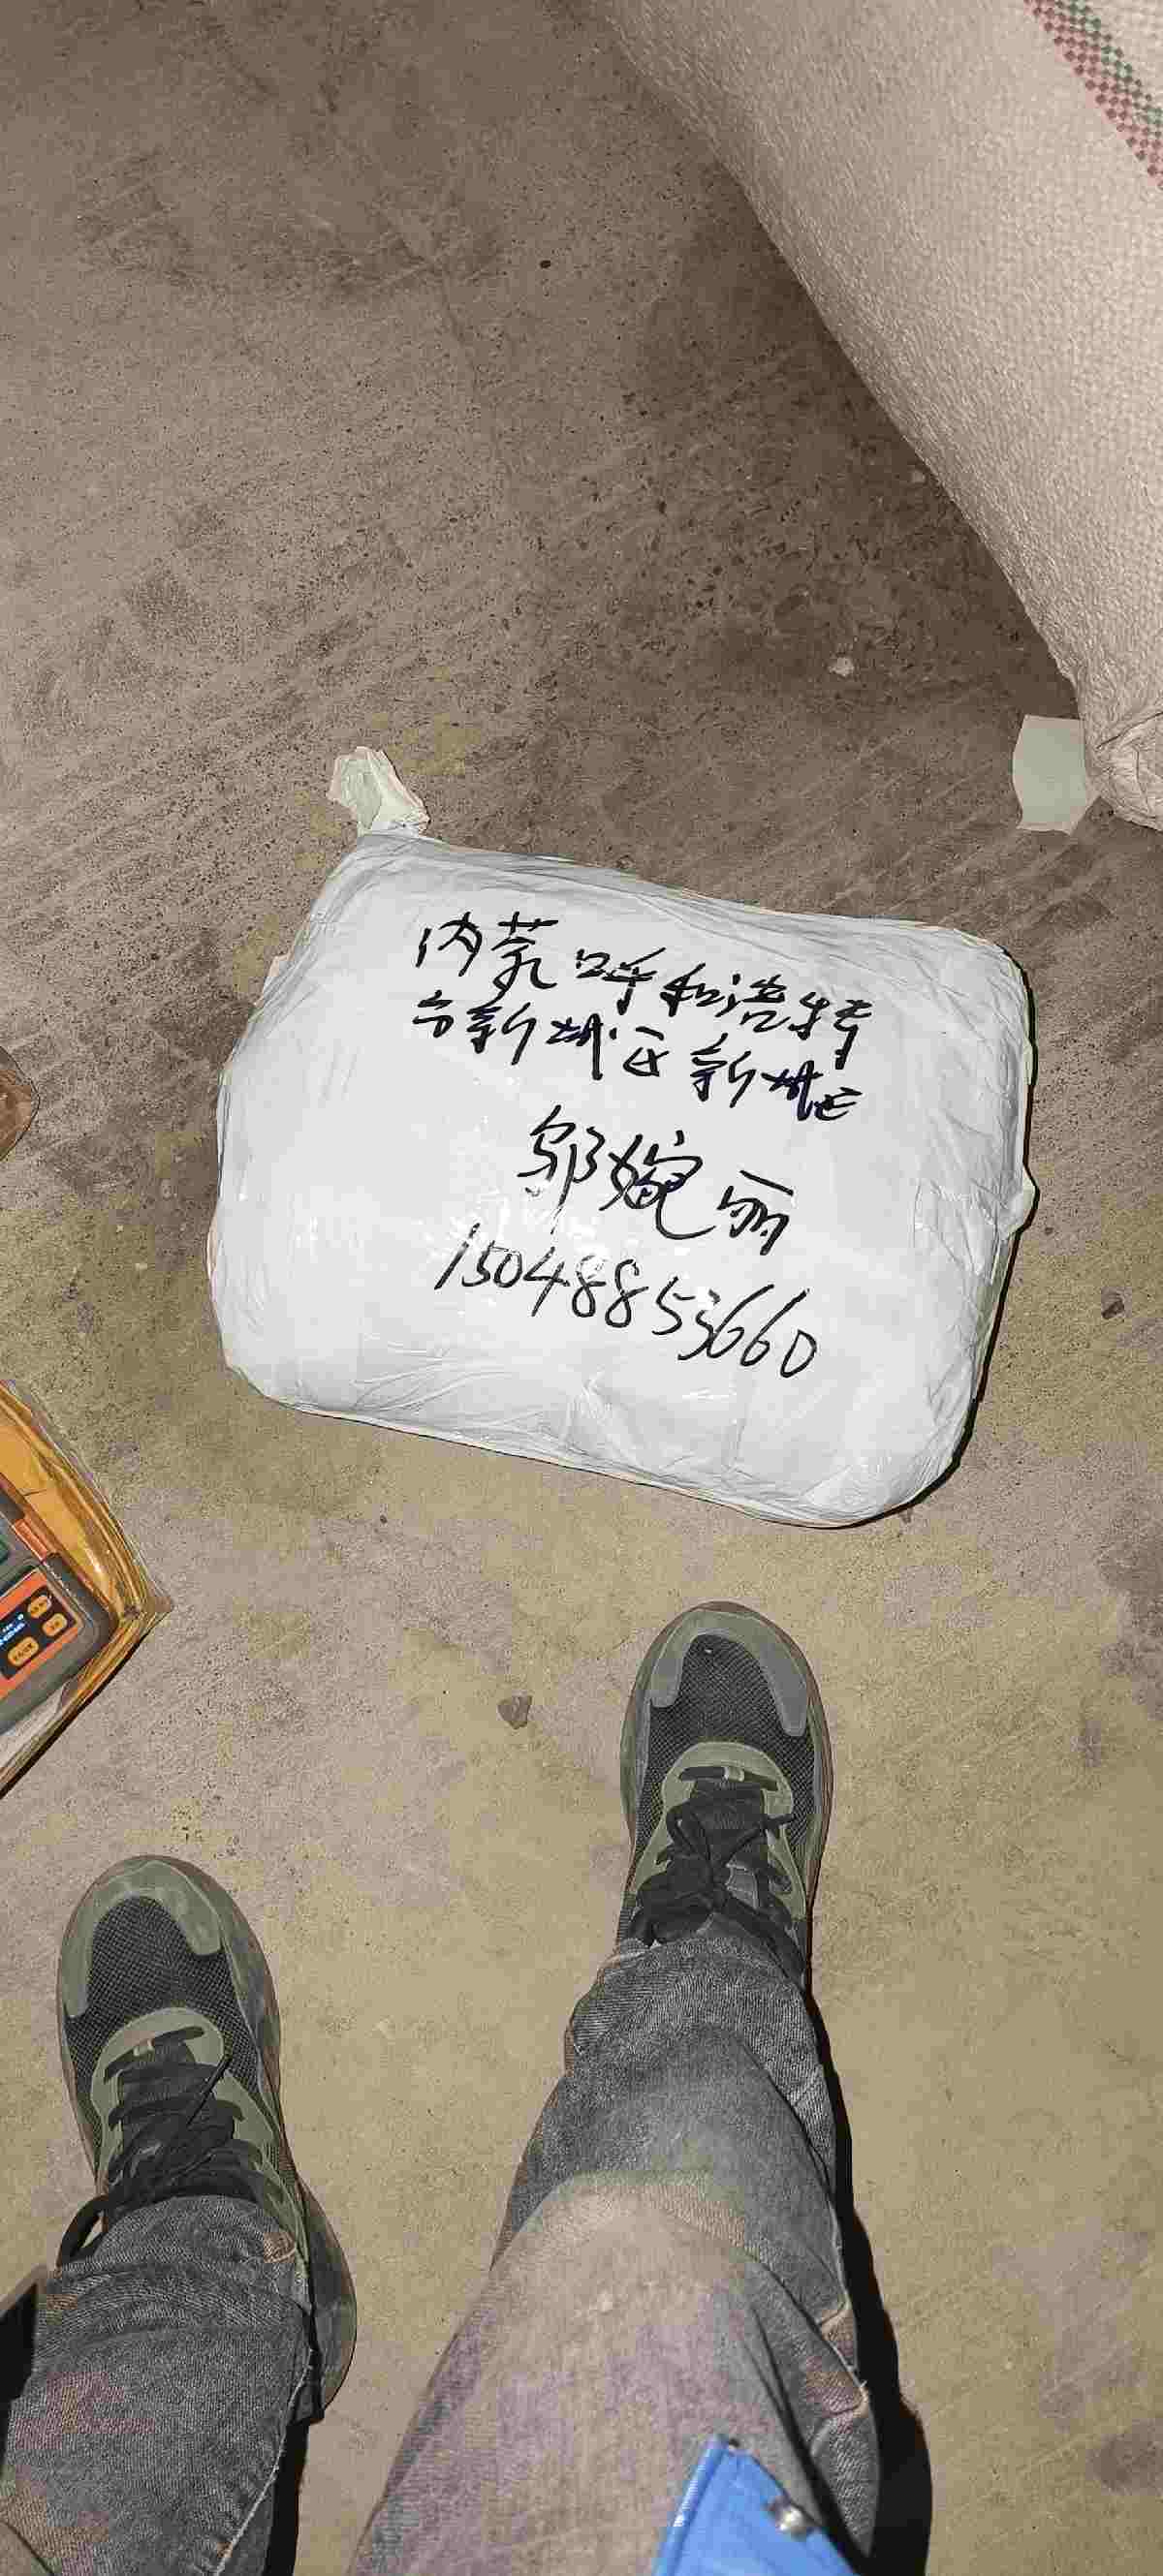 内蒙呼和浩特
市新城区新城区
邬婉丽
15048853660